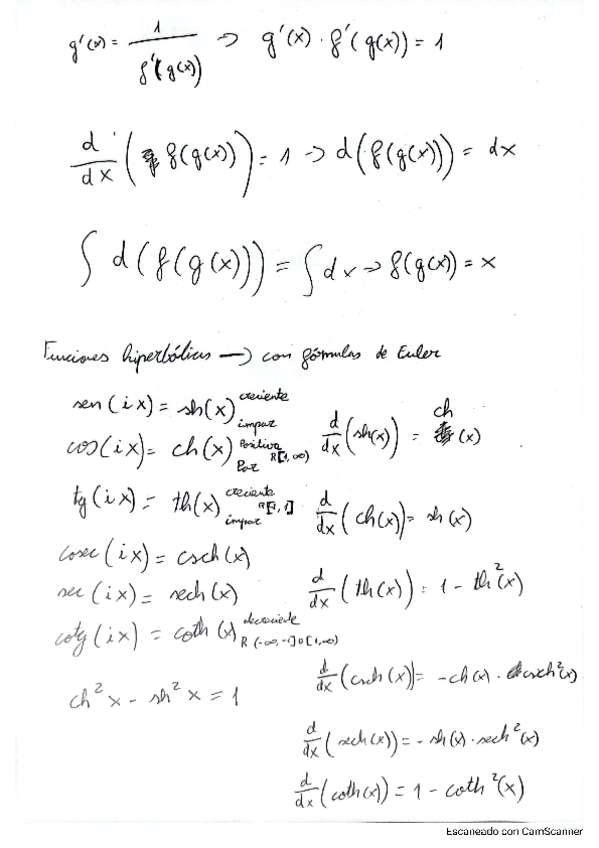 g'(x) = 1 / f'(g(x)) → g'(x) · f'(g(x)) = 1
d/dx (f(g(x))) = 1 → d(f(g(x))) = dx
∫ d(f(g(x))) = ∫ dx → f(g(x)) = x
Funciones hiperbólicas → con fórmulas de Euler
sen(ix) = sh(x) creciente impar
d/dx (sh(x)) = ch(x)
cos(ix) = ch(x) Positiva Par R[1, ∞)
tg(ix) = th(x) creciente impar
d/dx (ch(x)) = sh(x)
cosec(ix) = csch(x)
sec(ix) = sech(x)
d/dx (th(x)) = 1 - th²(x)
cotg(ix) = coth(x) decreciente R (-∞, -1] U [1, ∞)
ch²x - sh²x = 1
d/dx (csch(x)) = -ch(x) · csch²(x)
d/dx (sech(x)) = -sh(x) · sech²(x)
d/dx (coth(x)) = 1 - coth²(x)
Escaneado con CamScanner